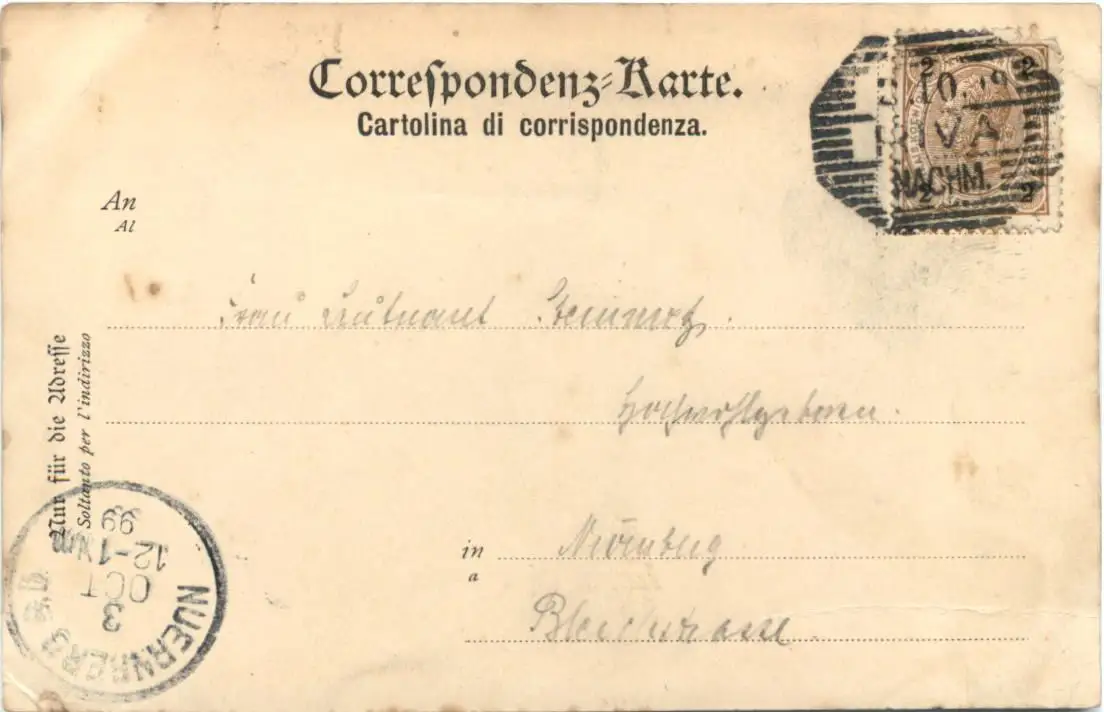 Correspondenz-Karte.
Cartolina di corrispondenza.
2 2
10
VA
NACHM.
2 2
An
Al
Frau Leutnant Steinmetz.
Hochwohlgeboren.
Nur für die Adresse
Soltanto per l'indirizzo
in Nürnberg
a
Bleichstrasse.
NUERNBERG
3
OCT
12-1 Nm
99